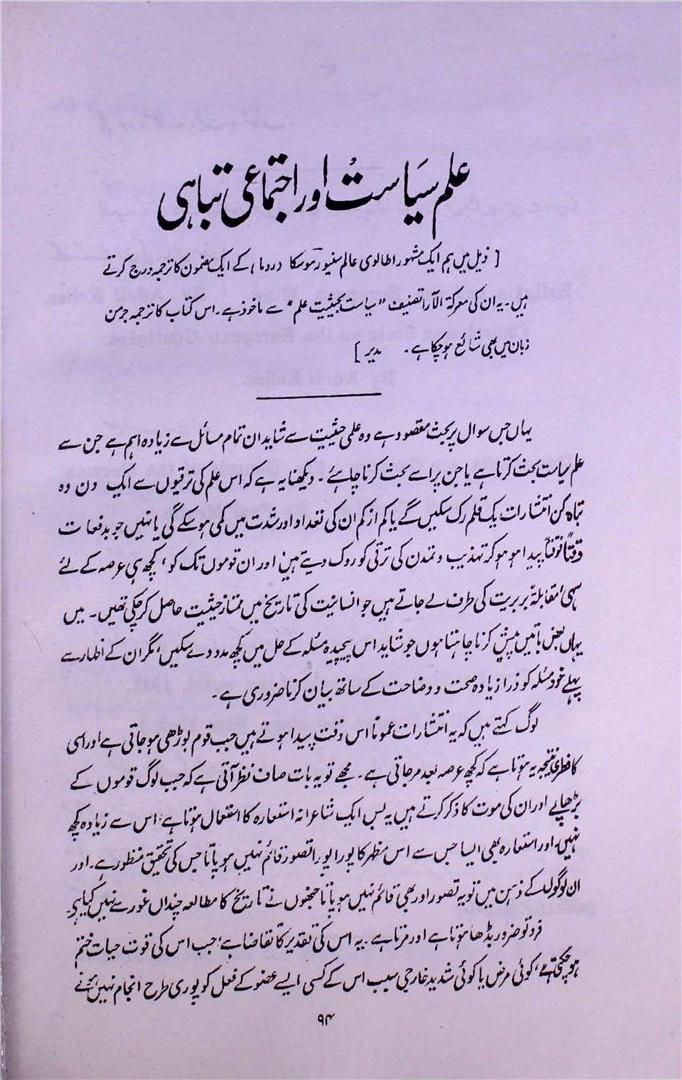 علم سیاست اور اجتماعی تباہی
[ ذیل میں ہم ایک مشہور اطالوی عالم سنیور موسکا (روما) کے ایک مضمون کا ترجمہ درج کرتے
ہیں۔ یہ ان کی معرکۃ الآرا تصنیف ”سیاست بحیثیت علم“ سے ماخوذ ہے۔ اس کتاب کا ترجمہ جرمن
زبان میں بھی شائع ہو چکا ہے۔ مدیر ]
یہاں جس سوال پر بحث مقصود ہے وہ علمی حیثیت سے شاید ان تمام مسائل سے زیادہ اہم ہے جن سے
علم سیاست بحث کرتا ہے یا جن پر اسے بحث کرنا چاہئے۔ دیکھنا یہ ہے کہ اس علم کی ترقیوں سے ایک دن وہ
تباہ کن انتشارات یک قلم رک سکیں گے یا کم از کم ان کی تعداد اور شدت میں کمی ہو سکے گی یا نہیں جو بدفعات
وقتاً فوقتاً پیدا ہو ہو کر تہذیب و تمدن کی ترقی کو روک دیتے ہیں اور ان قوموں تک کو، کچھ ہی عرصہ کے لئے
سہی، مقابلۃً بربریت کی طرف لے جاتے ہیں جو انسانیت کی تاریخ میں ممتاز حیثیت حاصل کر چکی تھیں۔ میں
یہاں بعض باتیں پیش کرنا چاہتا ہوں جو شاید اس پیچیدہ مسئلہ کے حل میں کچھ مدد دے سکیں، مگر ان کے اظہار سے
پہلے خود مسئلہ کو ذرا زیادہ صحت و وضاحت کے ساتھ بیان کرنا ضروری ہے۔
لوگ کہتے ہیں کہ یہ انتشارات عموماً اس وقت پیدا ہوتے ہیں جب قوم بوڑھی ہو جاتی ہے اور اسی
کا فطری نتیجہ یہ ہوتا ہے کہ کچھ عرصہ بعد مر جاتی ہے۔ مجھے تو یہ بات صاف نظر آتی ہے کہ جب لوگ قوموں کے
بڑھاپے اور ان کی موت کا ذکر کرتے ہیں یہ بس ایک شاعرانہ استعارہ کا استعمال ہوتا ہے، اس سے زیادہ کچھ
نہیں، اور استعارہ بھی ایسا جس سے اس منظر کا پورا پورا تصور قائم نہیں ہو پاتا جس کی تحقیق منظور ہے۔ اور
ان لوگوں کے ذہن میں تو یہ تصور اور بھی قائم نہیں ہو پاتا جنھوں نے تاریخ کا مطالعہ چنداں غور سے نہیں کیا ہی۔
فرد تو ضرور بڈھا ہوتا ہے اور مرتا ہے۔ یہ اس کی تقدیر کا تقاضا ہے، جب اس کی قوت حیات ختم
ہو چکتی ہے، کوئی مرض یا کوئی شدید خارجی سبب اس کے کسی ایسے عضو کے فعل کو پوری طرح انجام نہیں پانے
۹۴